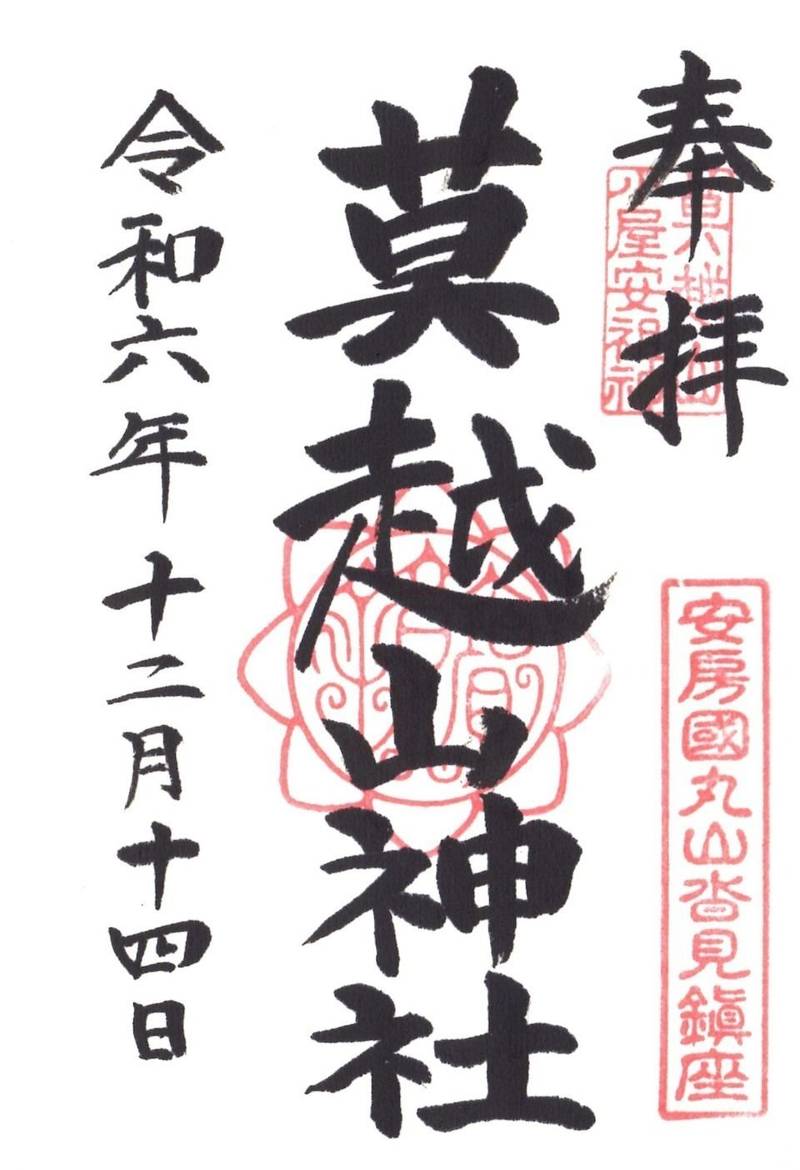 奉拝
安房國丸山沓見鎮座
莫越山神社
令和六年十二月十四日